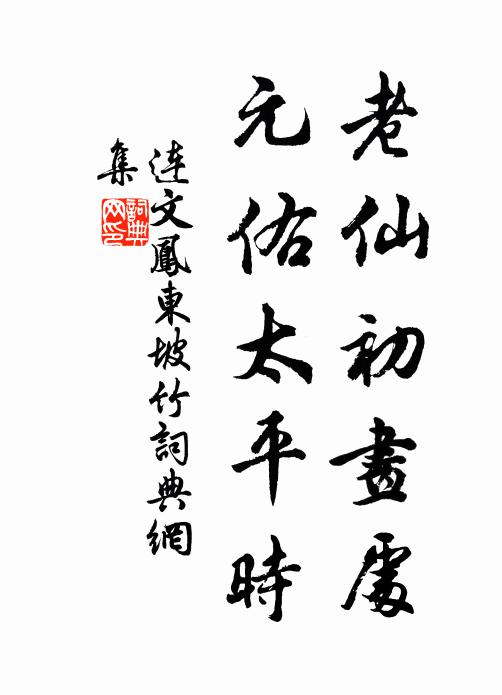 老仙初畫處
元佑太平時
連文鳳東坡竹詞典網
集
詞典网印